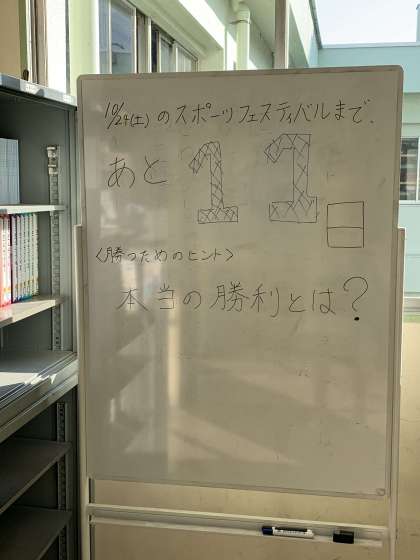 10/24(土)のスポーツフェスティバルまで、
あと 11日
〈勝つためのヒント〉
本当の勝利とは?